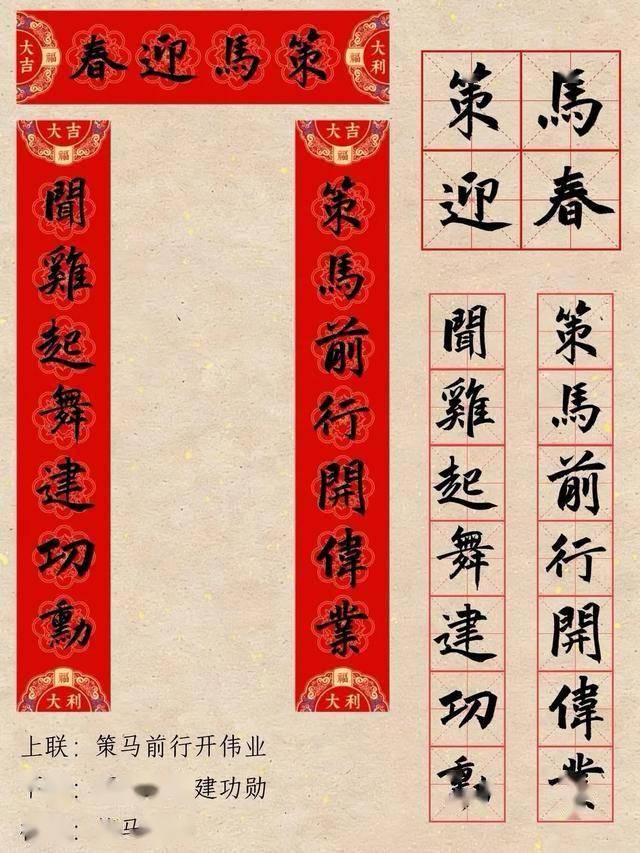 大吉
福
策馬迎春
福
大利
大吉
福
策馬前行開偉業
福
大利
大吉
福
聞雞起舞建功勳
福
大利
策馬
迎春
策馬前行開偉業
聞雞起舞建功
上联：策马前行开伟业
：建功勋
：马